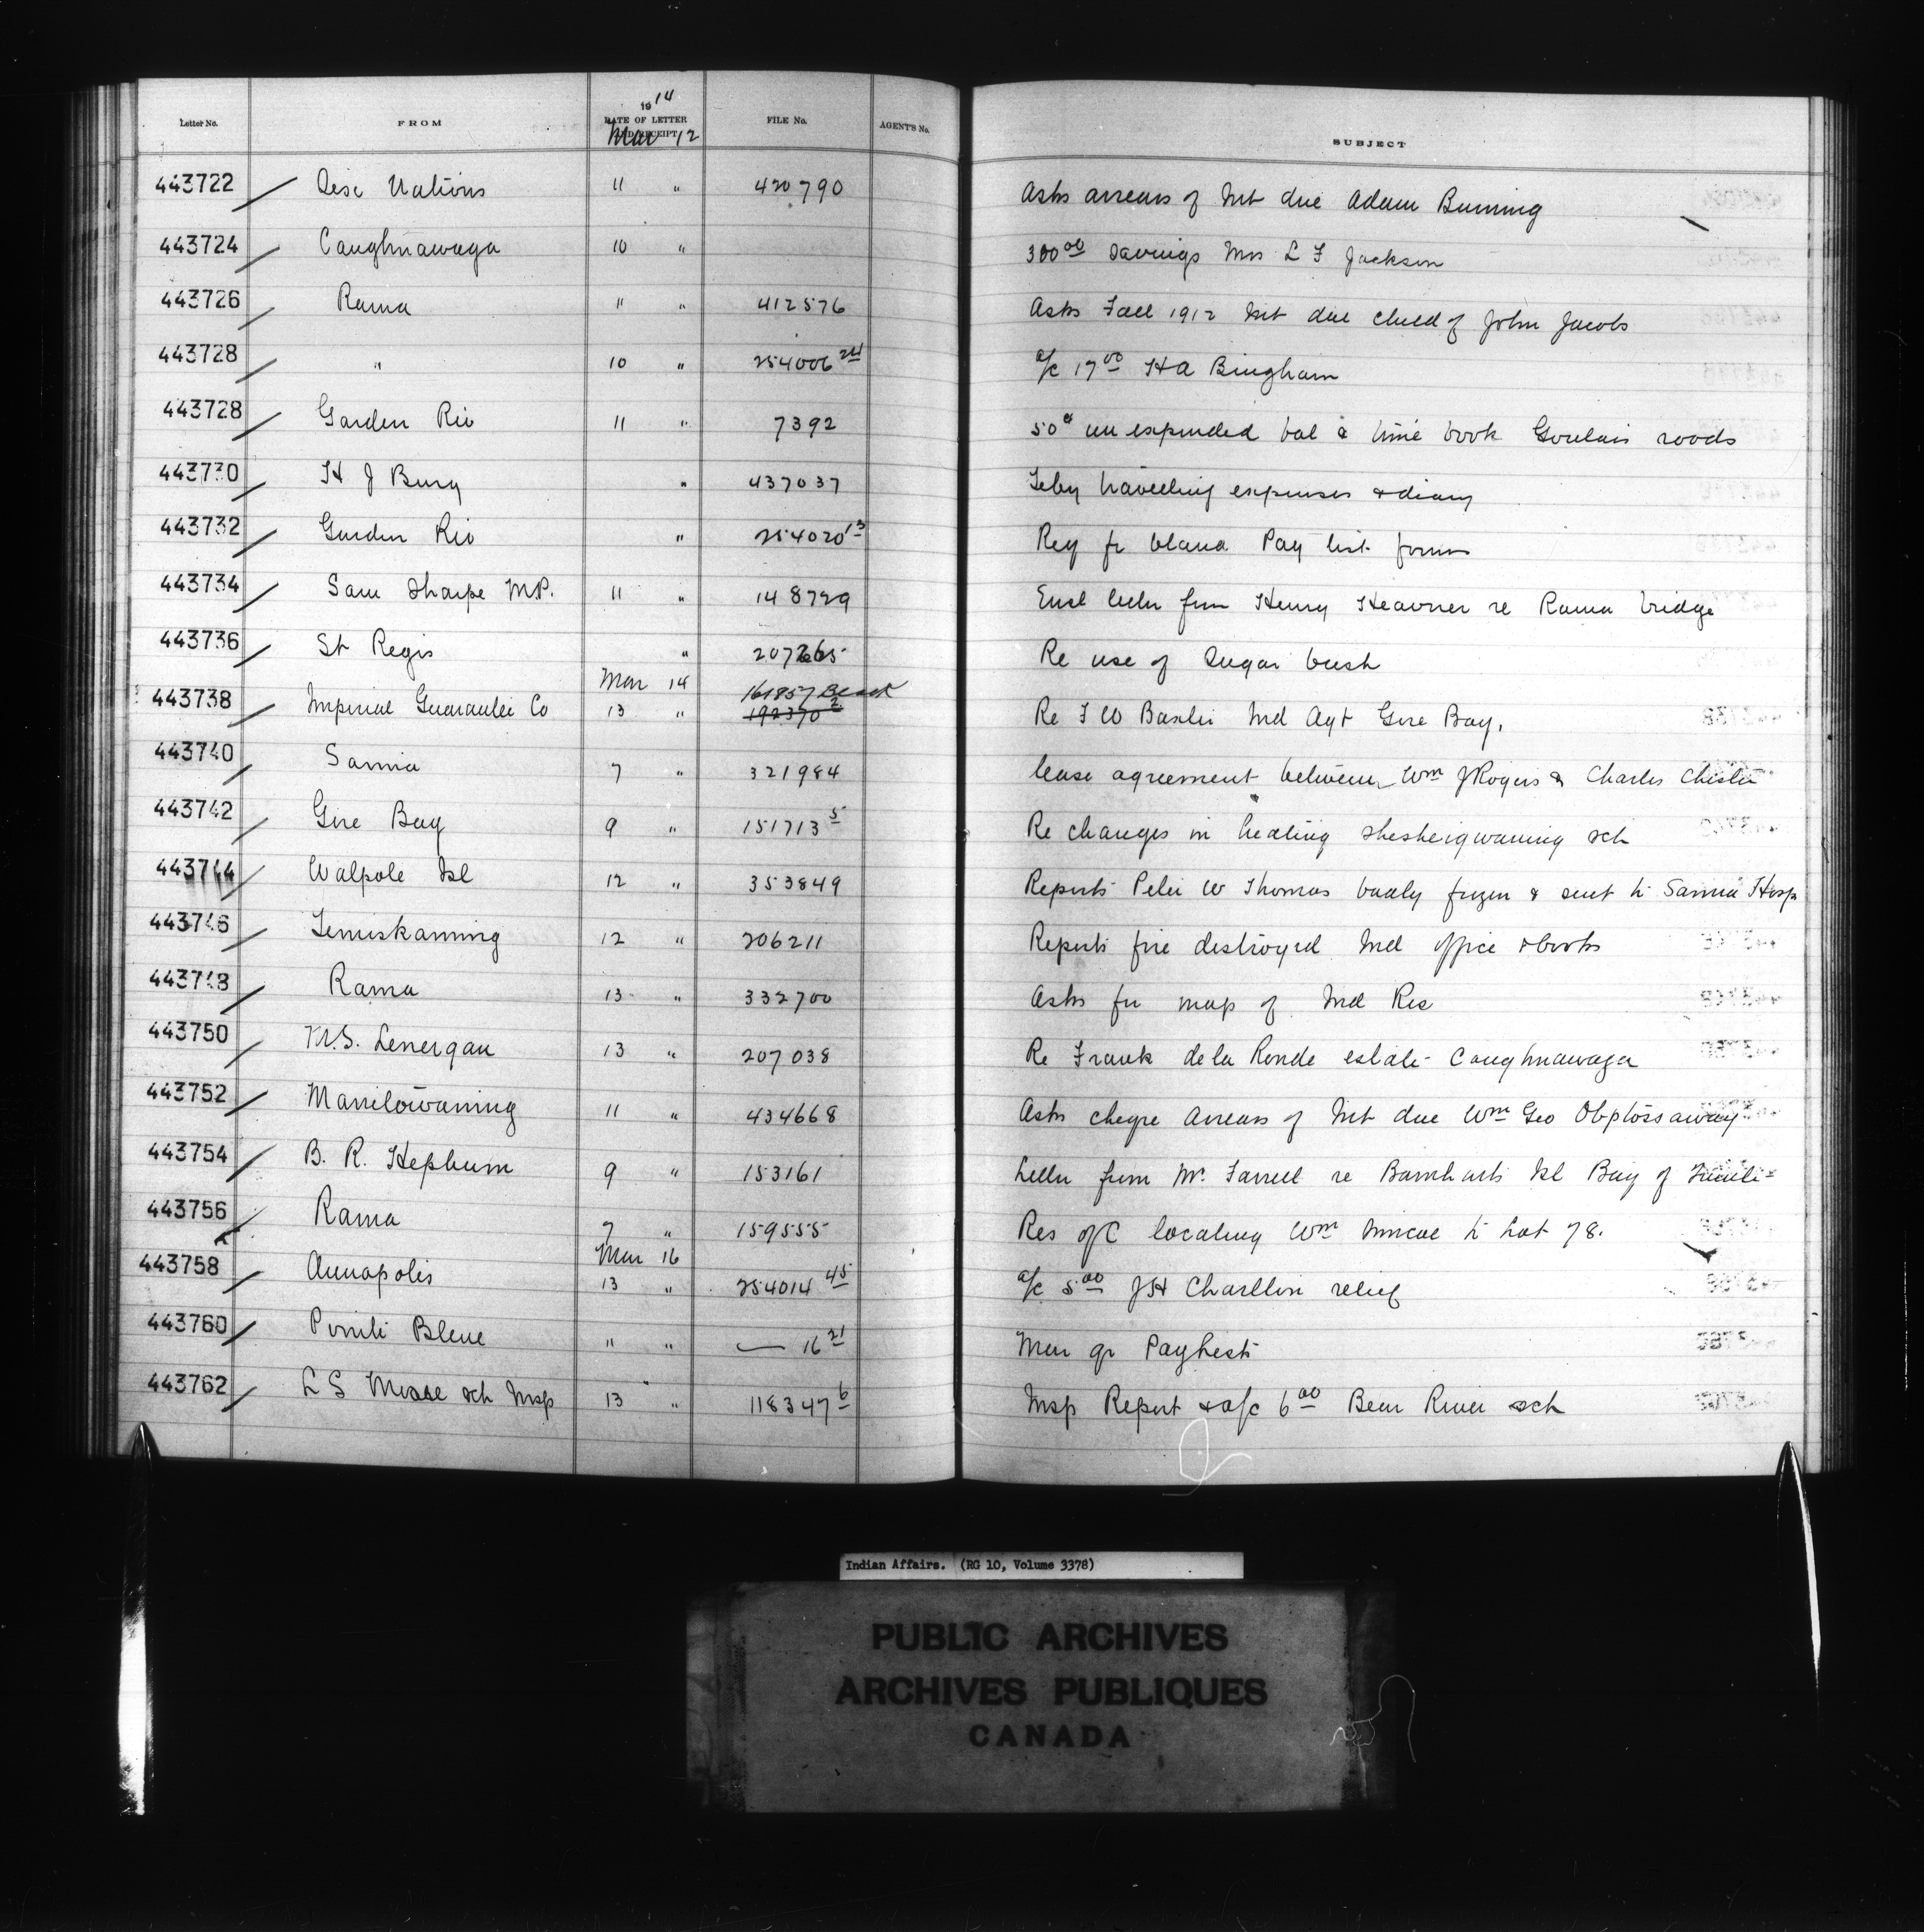 Letter No. FROM 1914 DATE OF LETTER AND RECEIPT FILE No. AGENT'S No. SUBJECT
Mar 12
443722 Six Nations 11 " 420790 Asks arrears of Int due Adam Burning
443724 Caughnawaga 10 " 300 00 Savings Mrs L F Jackson
443726 Rama 11 " 412576 Asks Fall 1912 Int due child of John Jacobs
443728 " 10 " 254006 24 a/c 17 00 H A Bingham
443728 Garden Riv 11 " 7392 50 c unexpended bal & time book Goulais roads
443730 H J Bury " 437037 Feby travelling expenses & diary
443732 Garden Riv " 254020 13 Req fr Pay list forms
443734 Sam Sharpe M.P. 11 " 148729 Encl letter from Henry Heavner re Rama bridge
443736 St Regis " 207265 Re use of Sugar bush
Mar 14 161857 Black
443738 Imperial Guarantee Co 13 " 192370 2 Re F W Baxter Ind Agt Gore Bay.
443740 Sarnia 7 " 321984 lease agreement between Wm J Rogers & Charles
443742 Gore Bay 9 " 151713 5 Re changes in heating Shesheigwaning sch
443744 Walpole Isl 12 " 353849 Reports Peter W Thomas badly frozen & sent to Sarnia Hosp
443746 Temiskaming 12 " 206211 Reports fire destroyed Ind office & books
443748 Rama 13 " 332700 Asks for map of Ind Res
443750 M.S. Lenergan 13 " 207038 Re Frank de la Ronde estate Caughnawaga
443752 Manitowaning 11 " 434668 Asks cheque arrears of Int due Wm Geo
443754 B. R. Hepburn 9 " 153161 Letter from Mr Farrell re Barnharts Isl Bay of
443756 Rama 7 " 159555 Res of C locating Wm to Lot 78.
Mar 16
443758 Annapolis 13 " 254014 45 a/c 5 00 J H Charlton relief
443760 Pointe Bleue " " — 16 21 Mar qr Paylists
443762 L S sch Insp 13 " 118347 6 Insp Report & a/c 6 00 Bear River sch
Indian Affairs. (RG 10, Volume 3378)
PUBLIC ARCHIVES
ARCHIVES PUBLIQUES
CANADA